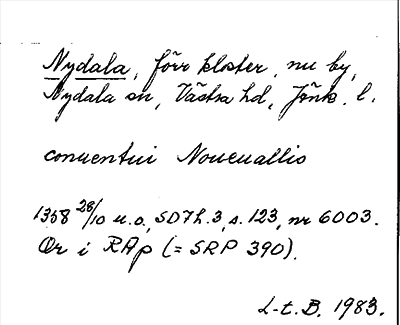 Nydala, förr kloster, nu by,
Nydala sn, Västra hd, Jönk. l.
conuentui Noueuallis
1358 28/10 u.o., SD7h.3, s. 123, nr 6003.
Or i RAp (= SRP 390).
L-t. B. 1983.